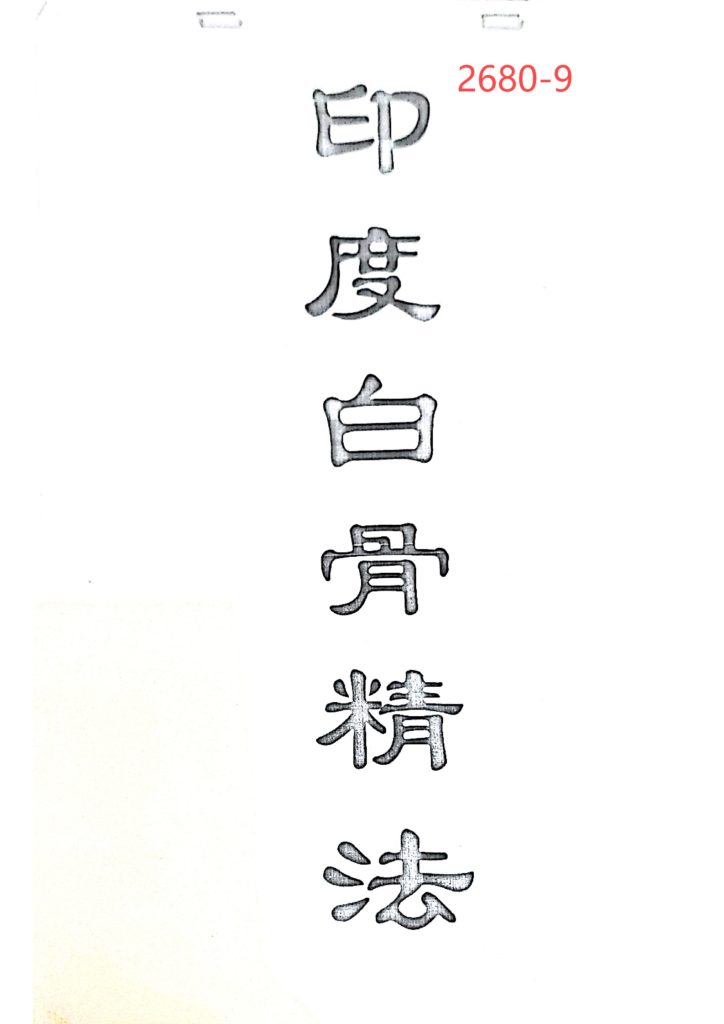 2680-9
印度白骨精法